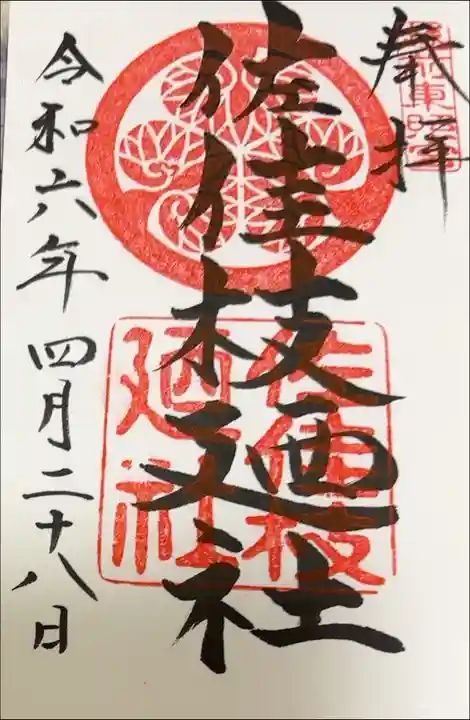 奉拝
佐佳枝廼社
佐佳枝
廼社
令和六年四月二十八日